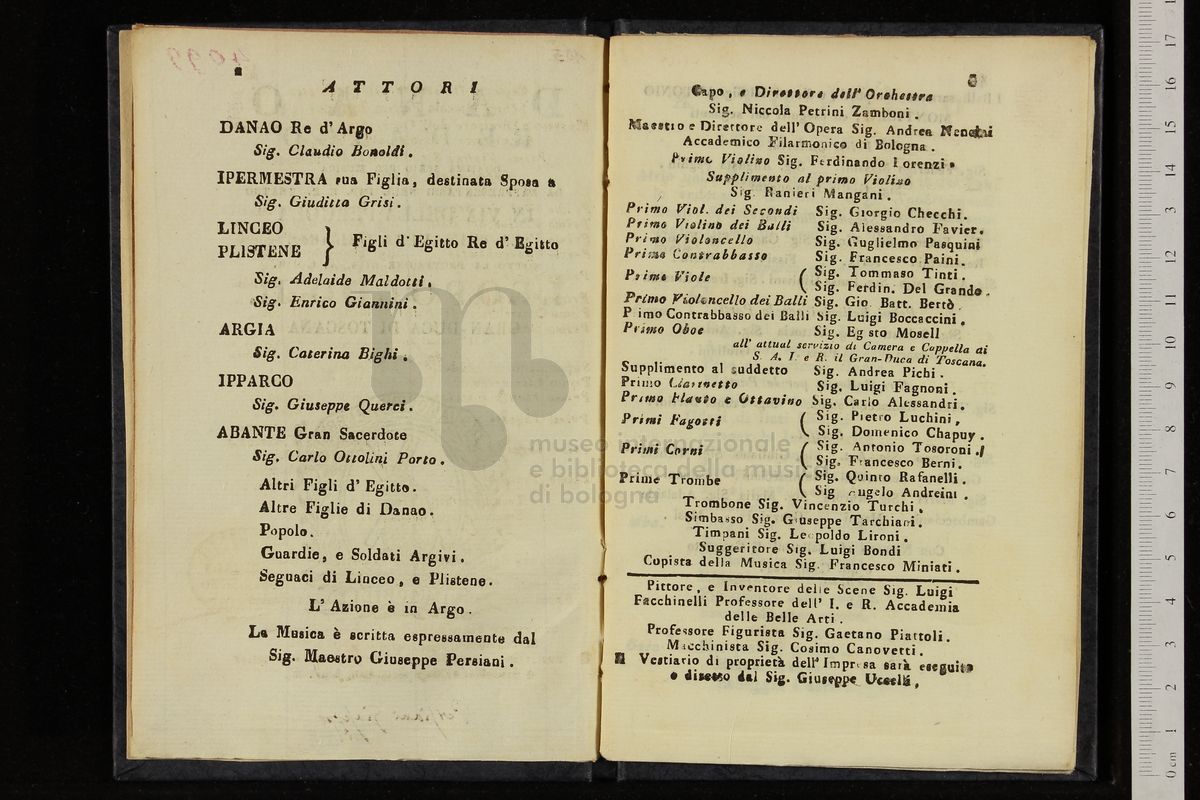 ATTORI
DANAO Re d' Argo
Sig. Claudio Bonoldi.
IPERMESTRA sua Figlia, destinata Sposa a
Sig. Giuditta Grisi.
LINCEO
PLISTENE } Figli d' Egitto Re d' Egitto
Sig. Adelaide Maldotti.
Sig. Enrico Giannini.
ARGIA
Sig. Caterina Bighi.
IPPARCO
Sig. Giuseppe Querci.
ABANTE Gran Sacerdote
Sig. Carlo Ottolini Porto.
Altri Figli d' Egitto.
Altre Figlie di Danao.
Popolo.
Guardie, e Soldati Argivi.
Seguaci di Linceo, e Plistene.
L' Azione è in Argo.
La Musica è scritta espressamente dal
Sig. Maestro Giuseppe Persiani.
Capo, e Direttore dell' Orchestra
Sig. Niccola Petrini Zamboni.
Maestro e Direttore dell' Opera Sig. Andrea Nencini
Accademico Filarmonico di Bologna.
Primo Violino Sig. Ferdinando Lorenzi
Supplimento al primo Violino
Sig. Ranieri Mangani.
Primo Viol. dei Secondi Sig. Giorgio Checchi.
Primo Violino dei Balli Sig. Alessandro Favier.
Primo Violoncello Sig. Guglielmo Pasquini
Primo Contrabbasso Sig. Francesco Paini.
Prime Viole ( Sig. Tommaso Tinti.
( Sig. Ferdin. Del Grande.
Primo Violoncello dei Balli Sig. Gio. Batt. Bertò
Primo Contrabbasso dei Balli Sig. Luigi Boccaccini.
Primo Oboe Sig. Egisto Mosell
all' attual servizio di Camera e Cappella di
S. A. I. e R. il Gran-Duca di Toscana.
Supplimento al suddetto Sig. Andrea Pichi.
Primo Clarinetto Sig. Luigi Fagnoni.
Primo Flauto e Ottavino Sig. Carlo Alessandri.
Primi Fagotti ( Sig. Pietro Luchini,
( Sig. Domenico Chapuy.
Primi Corni ( Sig. Antonio Tosoroni.
( Sig. Francesco Berni.
Prime Trombe ( Sig. Quinto Rafanelli.
( Sig. Angelo Andreini.
Trombone Sig. Vincenzio Turchi.
Simbasso Sig. Giuseppe Tarchiani.
Timpani Sig. Leopoldo Lironi.
Suggeritore Sig. Luigi Bondi
Copista della Musica Sig. Francesco Miniati.
Pittore, e Inventore delle Scene Sig. Luigi
Facchinelli Professore dell' I. e R. Accademia
delle Belle Arti.
Professore Figurista Sig. Gaetano Piattoli.
Macchinista Sig. Cosimo Canovetti.
Il Vestiario di proprietà dell' Impresa sarà eseguito
e diretto dal Sig. Giuseppe Uccelli,
museo internazionale
e biblioteca della musica
di bologna
0 cm 1 2 3 4 5 6 7 8 9 10 11 12 13 14 15 16 17